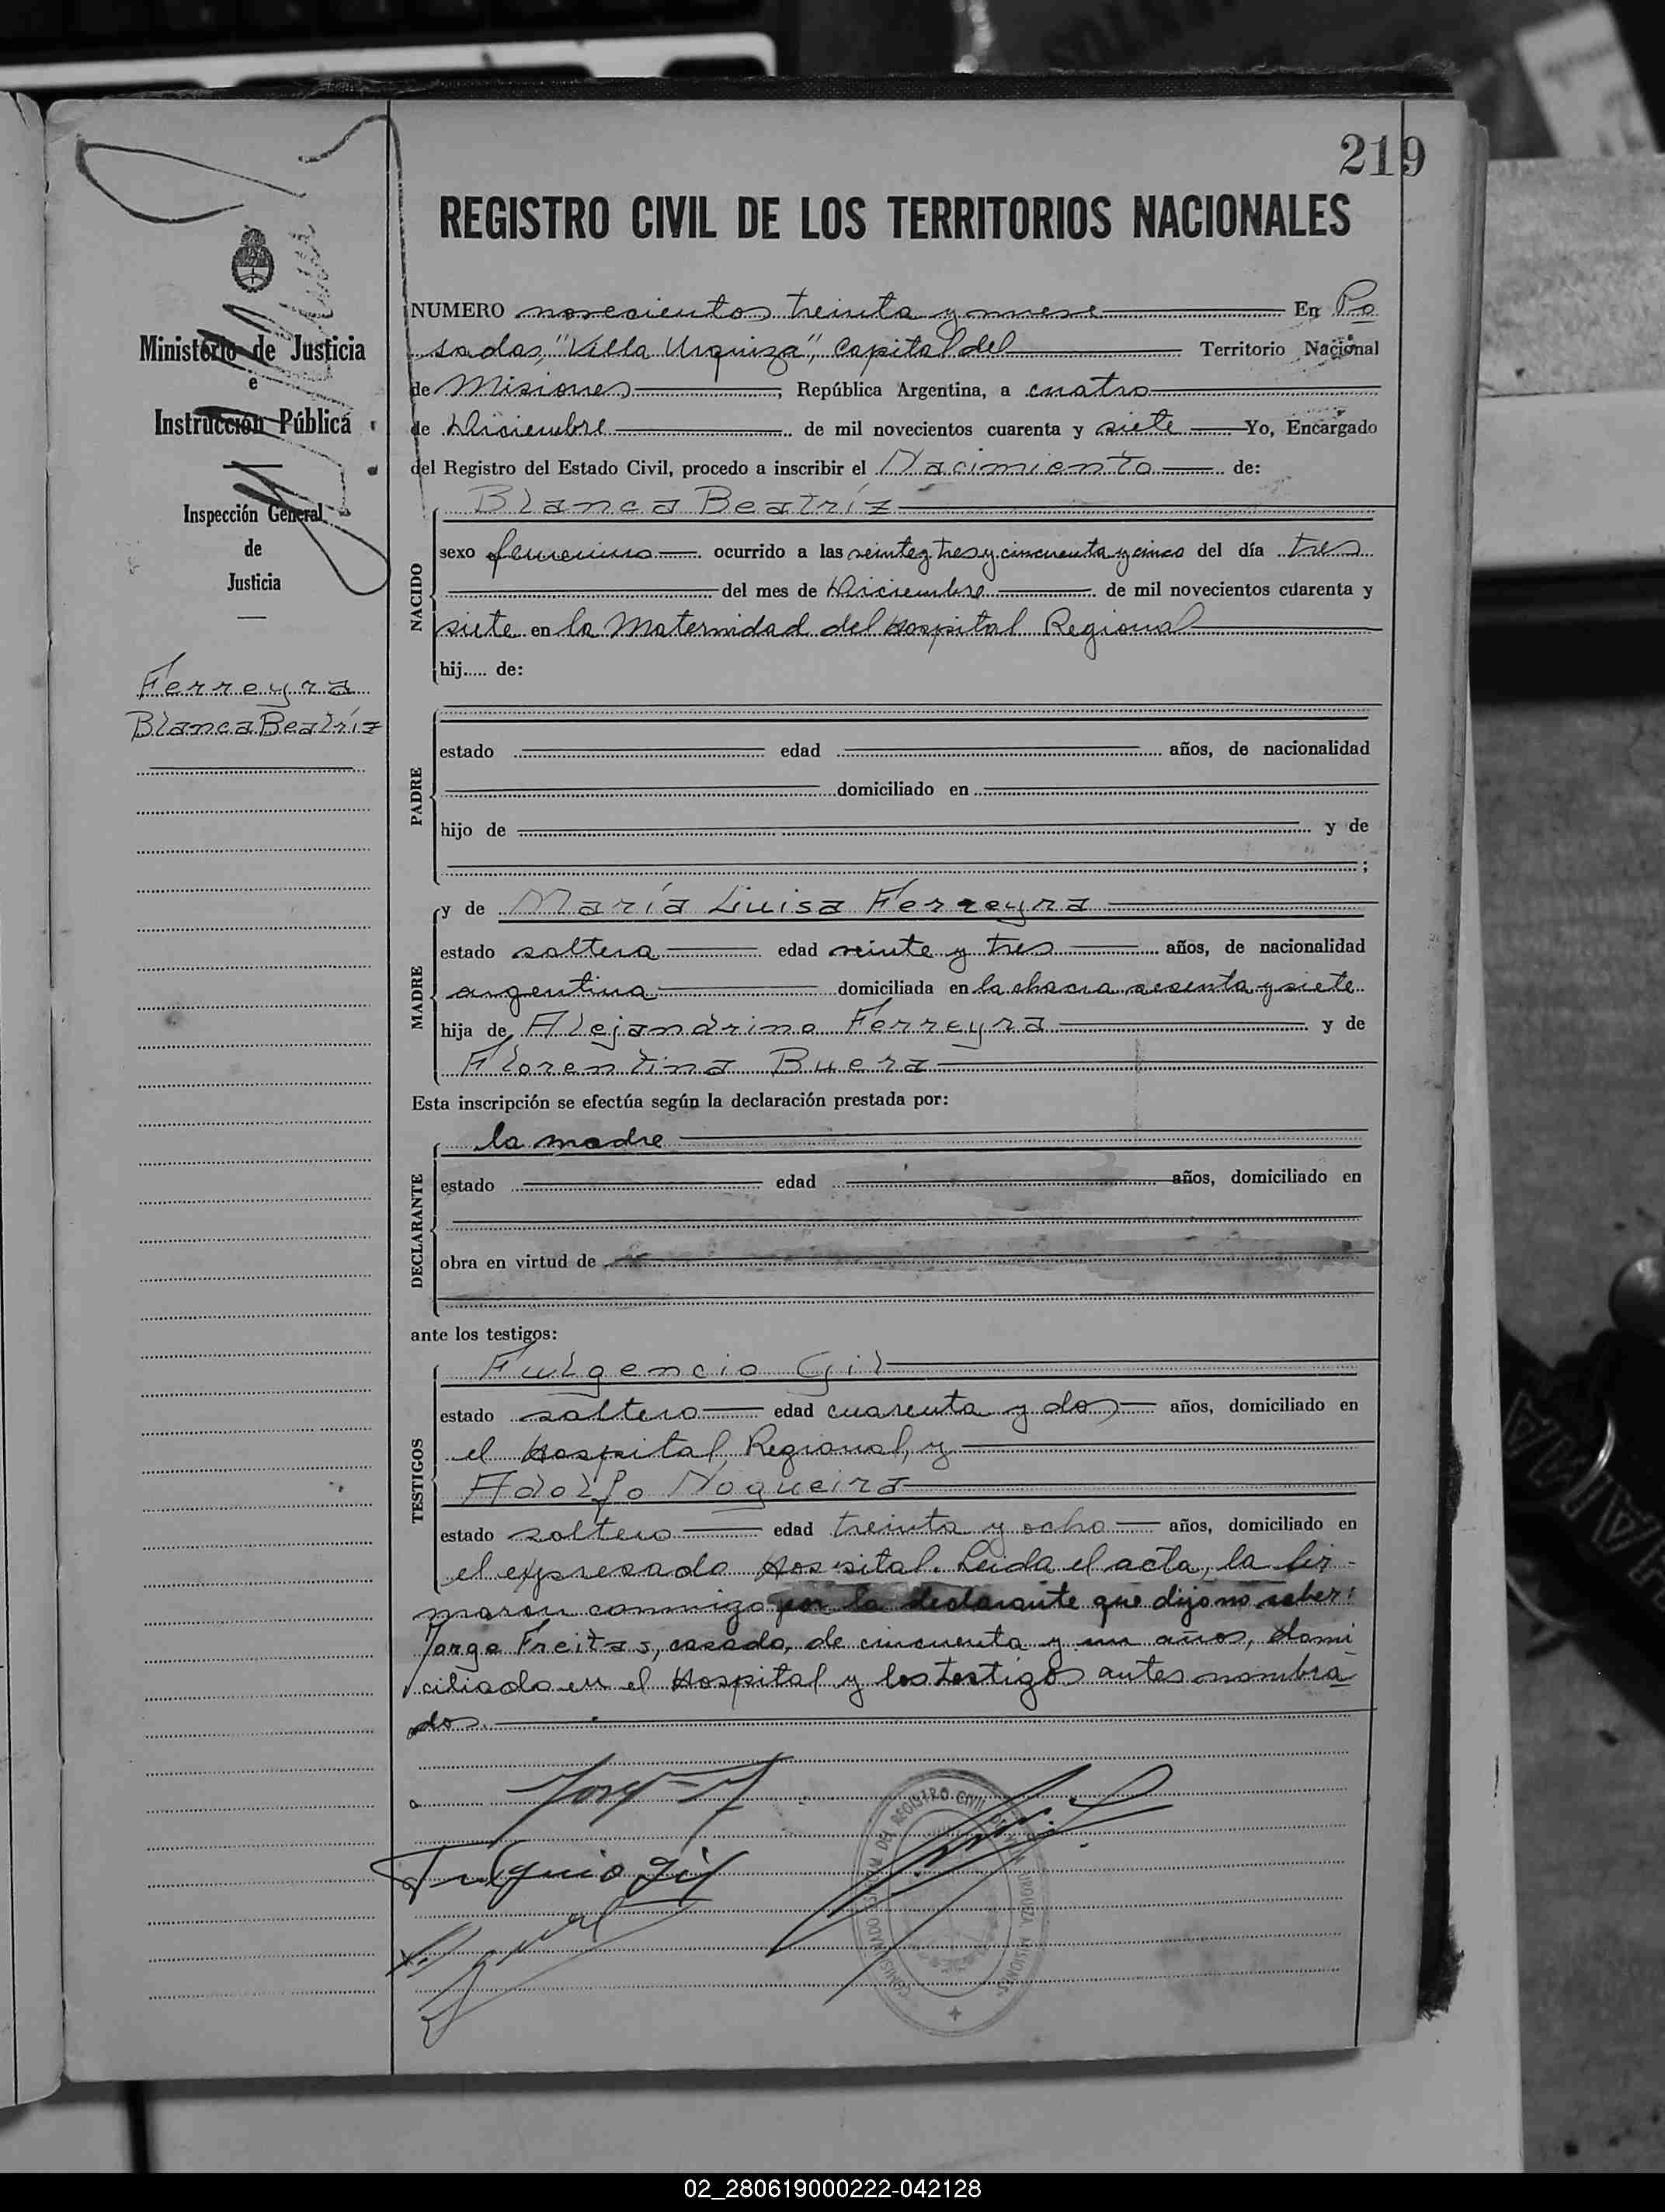 219
REGISTRO CIVIL DE LOS TERRITORIOS NACIONALES
Ministerio de Justicia
e
Instrucción Pública
Inspección General
de
Justicia
Ferreyra
Blanca Beatríz
NUMERO novecientos treinta y nueve En Po
sadas, "Villa Urquiza", capital del Territorio Nacional
de Misiones, República Argentina, a cuatro
de Diciembre de mil novecientos cuarenta y siete Yo, Encargado
del Registro del Estado Civil, procedo a inscribir el Nacimiento de:
NACIDO
Blanca Beatríz
sexo femenino ocurrido a las veinte y tres y cincuenta y cinco del día tres
del mes de Diciembre de mil novecientos cuarenta y
siete en la Maternidad del Hospital Regional
hij..... de:
PADRE
estado edad años, de nacionalidad
domiciliado en
hijo de y de
;
MADRE
y de María Luisa Ferreyra
estado soltera edad veinte y tres años, de nacionalidad
argentina domiciliada en la chacra sesenta y siete
hija de Alejandrino Ferreyra y de
Florentina Buera
Esta inscripción se efectúa según la declaración prestada por:
DECLARANTE
la madre
estado edad años, domiciliado en
obra en virtud de
ante los testigos:
TESTIGOS
Fulgencio Gil
estado soltero edad cuarenta y dos años, domiciliado en
el Hospital Regional, y
Adolfo Nogueira
estado soltero edad treinta y ocho años, domiciliado en
el expresado Hospital. Leída el acta, la fir-
maron conmigo por la declarante que dijo no saber:
Jorge Freitas, casado, de cincuenta y un años, domi
ciliado en el Hospital y los testigos antes nombra
dos.
Fulgencio Gil
REGISTRO CIVIL URQUIZA MISIONES
02_280619000222-042128